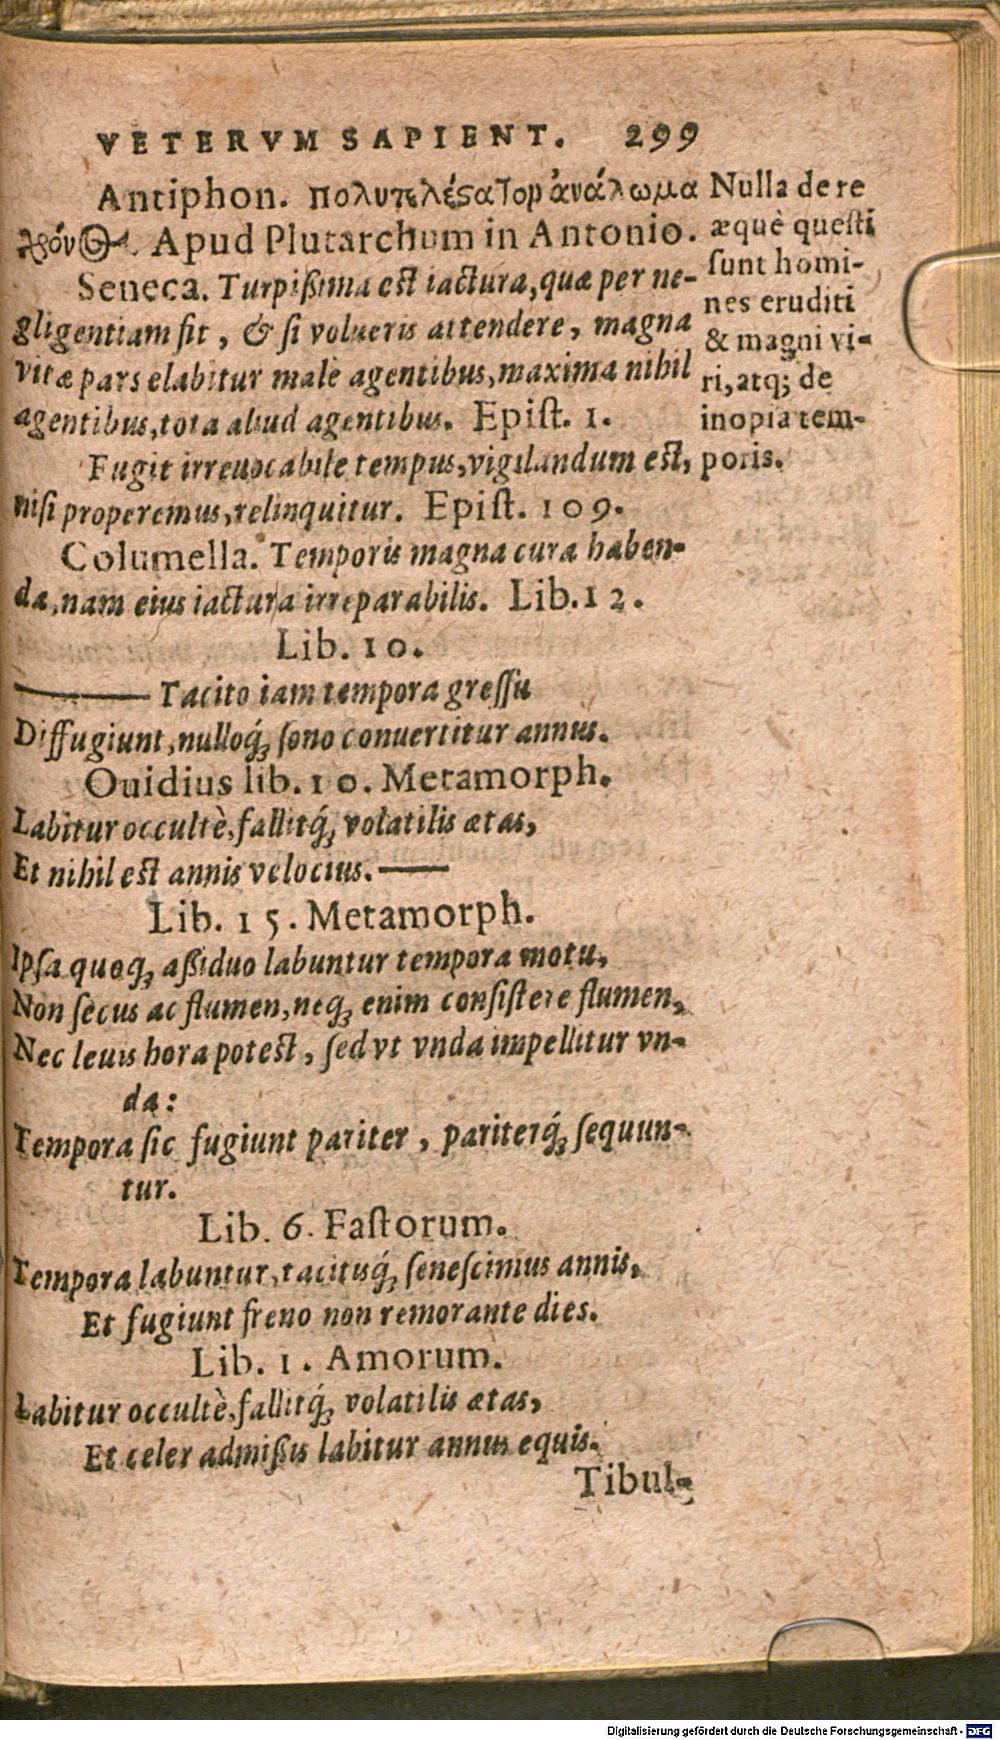 VETERVM SAPIENT. 299
Antiphon. πολυτελέςατον ἀνάλωμα
χρόνος. Apud Plutarchum in Antonio.
Seneca. Turpißima est iactura, quæ per ne-
gligentiam fit, & si volueris attendere, magna
vitæ pars elabitur malè agentibus, maxima nihil
agentibus, tota aliud agentibus. Epist. 1.
Fugit irreuocabile tempus, vigilandum est,
nisi properemus, relinquitur. Epist. 109.
Columella. Temporis magna cura haben-
da, nam eius iactura irreparabilis. Lib. 12.
Lib. 10.
——— Tacito iam tempora gressu
Diffugiunt, nulloq́; sono conuertitur annus.
Ouidius lib. 10. Metamorph.
Labitur occultè, fallitq́; volatilis ætas,
Et nihil est annis velocius. ——
Lib. 15. Metamorph.
Ipsa quoq; aßiduo labuntur tempora motu,
Non secus ac flumen, neq; enim consistere flumen,
Nec leuis hora potest, sed vt vnda impellitur vn-
da:
Tempora sic fugiunt pariter, pariterq́; sequun-
tur.
Lib. 6. Fastorum.
Tempora labuntur, tacitisq́; senescimus annis,
Et fugiunt freno non remorante dies.
Lib. 1. Amorum.
Labitur occultè, fallitq́; volatilis ætas,
Et celer admißis labitur annus equis.
Tibul-
Nulla de re
æquè questi
sunt homi-
nes eruditi
& magni vi-
ri, atq; de
inopia tem-
poris.
Digitalisierung gefördert durch die Deutsche Forschungsgemeinschaft - DFG